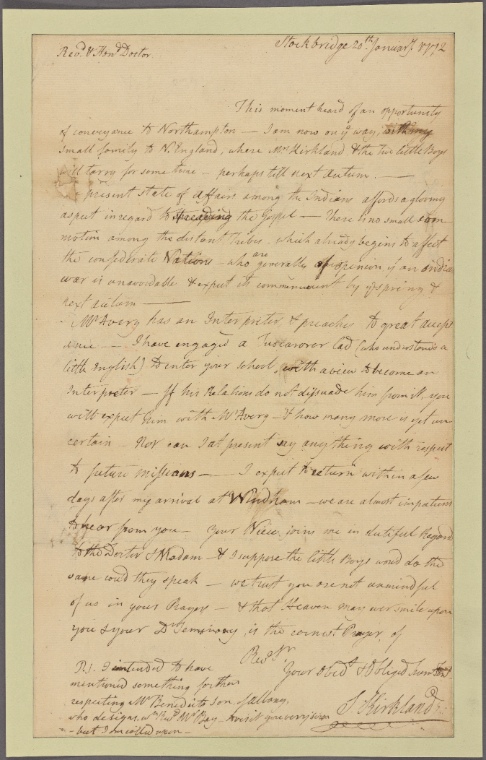 Revd. & Hond. Doctor
Stockbridge 20th. January. 1772
This moment heard of an opportunity
of conveyance to Northampton — I am now on ye. way, with my
small family to N. England, where Mrs. Kirkland & the two little Boys
will tarry for some time — perhaps till next autum. —
present state of affairs among the Indians affords a gloomy
aspect in regard to spreading the Gospel — There is no small com
motion among the distant tribes, which already begins to affect
the confederate Nations — who are generally of opinion if an indian
war is unavoidable & expect its commencement by ye. spring &
next autum —
Mr. Avery has an Interpreter & preaches to great accept
ence — I have engaged a lad (who understands a
little English) to enter your school, with a view to become an
Interpreter — If his Relations do not disuade him from it, you
will expect him with Mr. Avery — & how many more is yet un
certain — Nor can I at present say any thing with respect
to future missions — I expect to return within a few
days after my arrival at Windham — we are almost impatient
to hear from you — Your Niece joins me in dutiful Regard
to the Doctor & Madam — & I suppose the little Boys would do the
same could they speak — we trust you are not unmindful
of us in your Prayers — & that Heaven may ever smile upon
you & your Dr. Seminary is the earnest Prayer of
Revd. Sr.
Your Obedt. & Obliged
S. Kirkland
P.S. I intended to have
mentioned something further
respecting Mr. Benedicts son
who designs wth. Revd. Mr.
— but I am called upon —